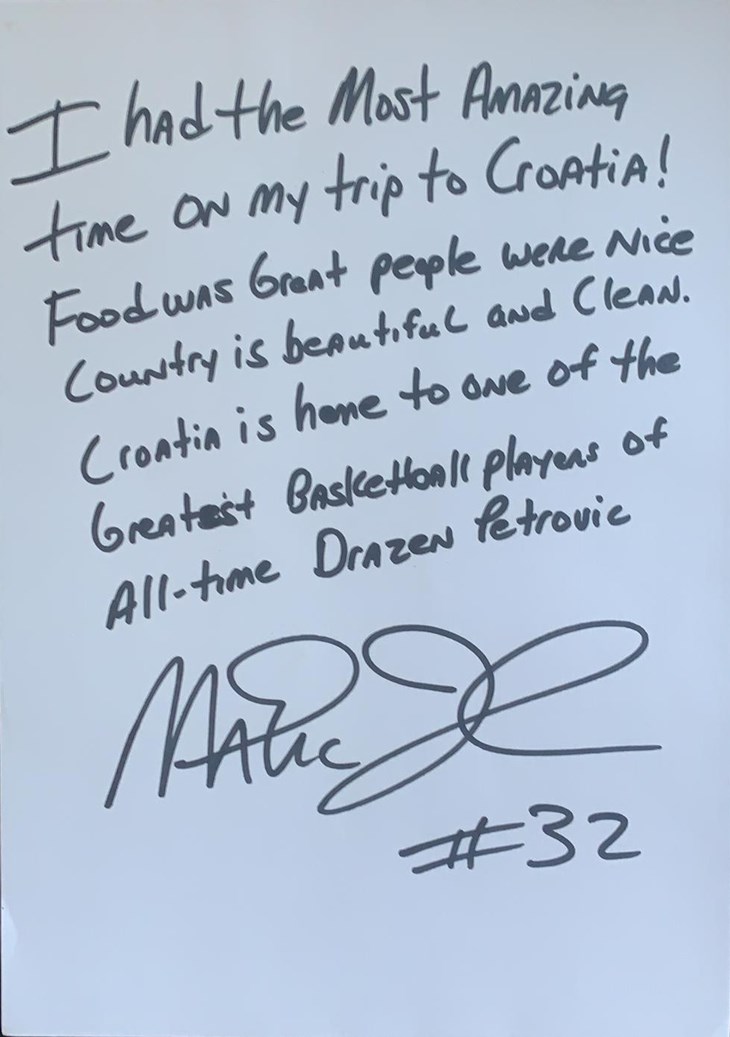 I had the Most Amazing
time on my trip to Croatia!
Food was Great people were Nice
Country is beautiful and Clean.
Croatia is home to one of the
Greatest Basketball players of
All-time Drazen Petrovic
Magic J
#32